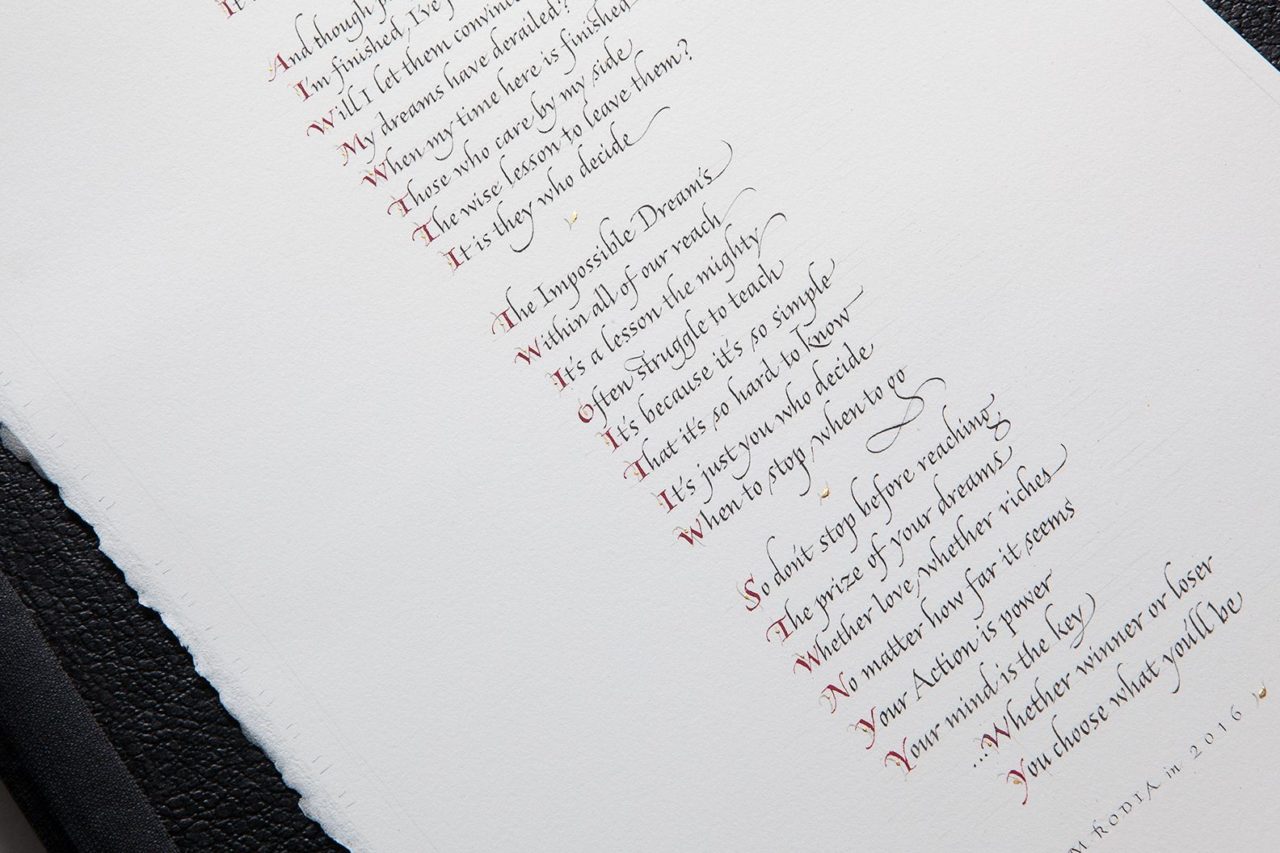 And though
I'm finished, I've
Will I let them
My dreams have derailed?
When my time here is finished
Those who care by my side
The wise lesson to leave them?
It is they who decide
The Impossible Dream's
Within all of our reach
It's a lesson the mighty
Often struggle to teach
It's because it's so simple
That it's so hard to know
It's just you who decide
When to stop, when to go
So don't stop before reaching
The prize of your dreams
Whether love, whether riches
No matter how far it seems
Your Action is power
Your mind is the key
...Whether winner or loser
You choose what you'll be
M RODIA in 2016